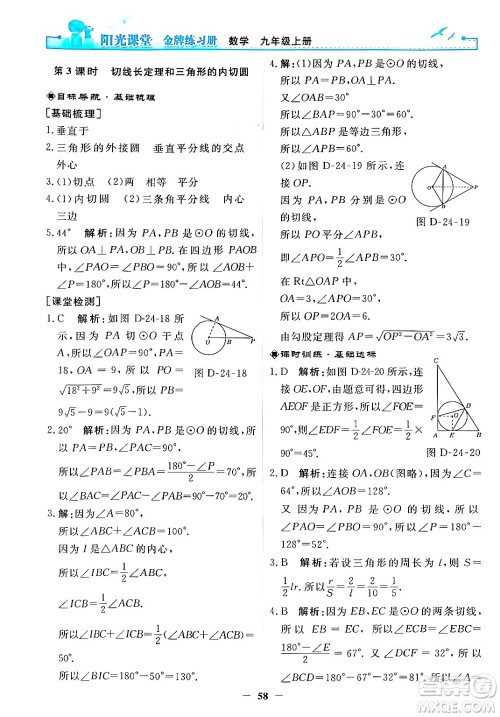 阳光课堂 金牌练习册 数学 九年级上册
第3课时 切线长定理和三角形的内切圆
目标导航·基础梳理
[基础梳理]
1.垂直于
2.三角形的外接圆 垂直平分线的交点
外心
3.(1)切点 (2)两 相等 平分
4.(1)内切圆 (2)三条角平分线 内心
三边
5.44° 解析:因为PA,PB是⊙O的切线,
所以OA⊥PA,OB⊥PB.在四边形PAOB
中,∠PAO=∠PBO=90°,所以∠AOB+
∠P=180°,所以∠P=180°-136°=44°.
[课堂检测]
1.C 解析:如图D-24-18
所示.因为PA切⊙O于
点A,所以∠OAP=90°.因
为OA=9,OP=18,所以PA=
√(18²+9²)=9√5.所以切线长为
9√5.
图D-24-18
2.20° 解析:因为PA,PB是⊙O的切线,
所以∠PAB=(180°-∠P)/2=(180°-40°)/2=70°,
所以∠BAC=90°-70°=20°.
3.解:因为∠A=80°,
所以∠ABC+∠ACB=100°.
因为点I是△ABC的内心,
所以∠IBC=1/2∠ABC,
∠ICB=1/2∠ACB,
所以∠IBC+∠ICB=1/2(∠ABC+
∠ACB)=50°,
所以∠BIC=180°-50°=130°.
4.解:因为PA,PB是⊙O的切线,
所以OA⊥PA,PA=PB.
又因为∠OAB=30°,
所以∠BAP=∠ABP=60°,
所以∠APB=60°.
(2)如图D-24-19所
示,连接OP.
因为PA,PB是⊙O
的两条切线,
所以PO平分∠APB,
图D-24-19
即∠APO=1/2∠APB=30°.
在Rt△OAP中,因为OA=3,∠APO
=30°,所以OP=6,
由勾股定理得AP=√(OP²-OA²)=3√3.
课时训练·基础达标
1.D 解析:如图D-24-20
所示,连接OE,OF,则OE
=OF.由题意可得,四边形
AEOF是正方形,所以∠FOE=
90°,所以∠EDF=1/2∠FOE=1/2×
90°=45°.
图D-24-20
2.D 解析:连接OA,OB(图略).因为∠C=
64°,所以∠AOB=128°.
又因为PA,PB是⊙O的切线,
所以∠OAP=∠OBP=90°,所以∠P=180°-
128°=52°.
3.B 解析:若设三角形的周长为l,则
1/2lr=S,所以l=2S/r.
4.B 解析:因为PA,PB是⊙O的两条切线,
所以∠OAP=∠OBP=90°,
所以∠AOB=360°-90°-90°-60°=
120°,
58